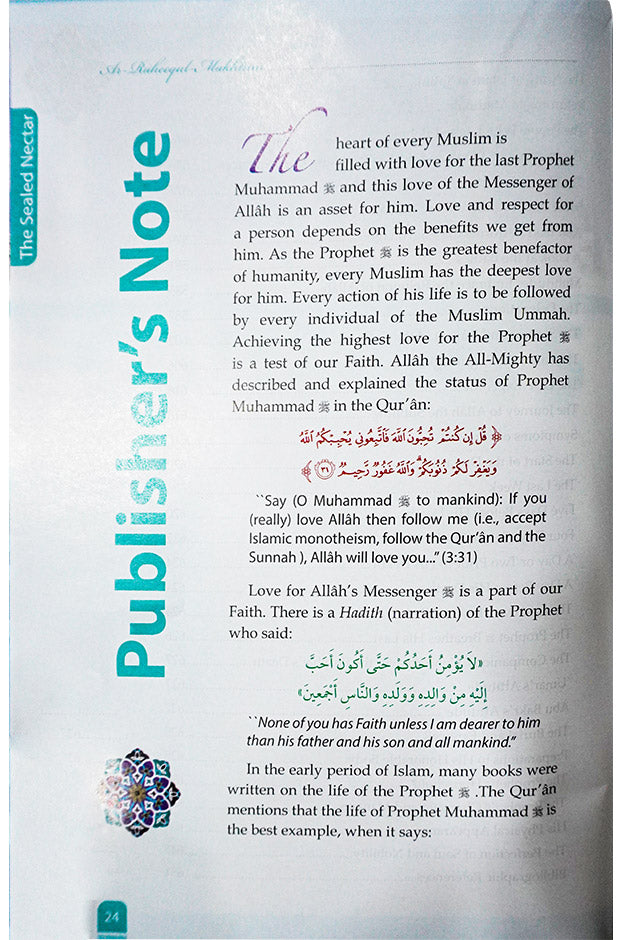 Ar-Raheequl-Makhtum
The Sealed Nectar
Publisher's Note
The heart of every Muslim is
filled with love for the last Prophet
Muhammad ﷺ and this love of the Messenger of
Allâh is an asset for him. Love and respect for
a person depends on the benefits we get from
him. As the Prophet ﷺ is the greatest benefactor
of humanity, every Muslim has the deepest love
for him. Every action of his life is to be followed
by every individual of the Muslim Ummah.
Achieving the highest love for the Prophet ﷺ
is a test of our Faith. Allâh the All-Mighty has
described and explained the status of Prophet
Muhammad ﷺ in the Qur'ân:
﴿ قُلْ إِن كُنتُمْ تُحِبُّونَ اللَّهَ فَاتَّبِعُونِي يُحْبِبْكُمُ اللَّهُ
وَيَغْفِرْ لَكُمْ ذُنُوبَكُمْ ۗ وَاللَّهُ غَفُورٌ رَّحِيمٌ ٣١ ﴾
``Say (O Muhammad ﷺ to mankind): If you
(really) love Allâh then follow me (i.e., accept
Islamic monotheism, follow the Qur'ân and the
Sunnah ), Allâh will love you..." (3:31)
Love for Allâh's Messenger ﷺ is a part of our
Faith. There is a Hadith (narration) of the Prophet
who said:
«لَا يُؤْمِنُ أَحَدُكُمْ حَتَّى أَكُونَ أَحَبَّ
إِلَيْهِ مِنْ وَالِدِهِ وَوَلَدِهِ وَالنَّاسِ أَجْمَعِينَ»
``None of you has Faith unless I am dearer to him
than his father and his son and all mankind."
In the early period of Islam, many books were
written on the life of the Prophet ﷺ .The Qur'ân
mentions that the life of Prophet Muhammad ﷺ is
the best example, when it says:
24